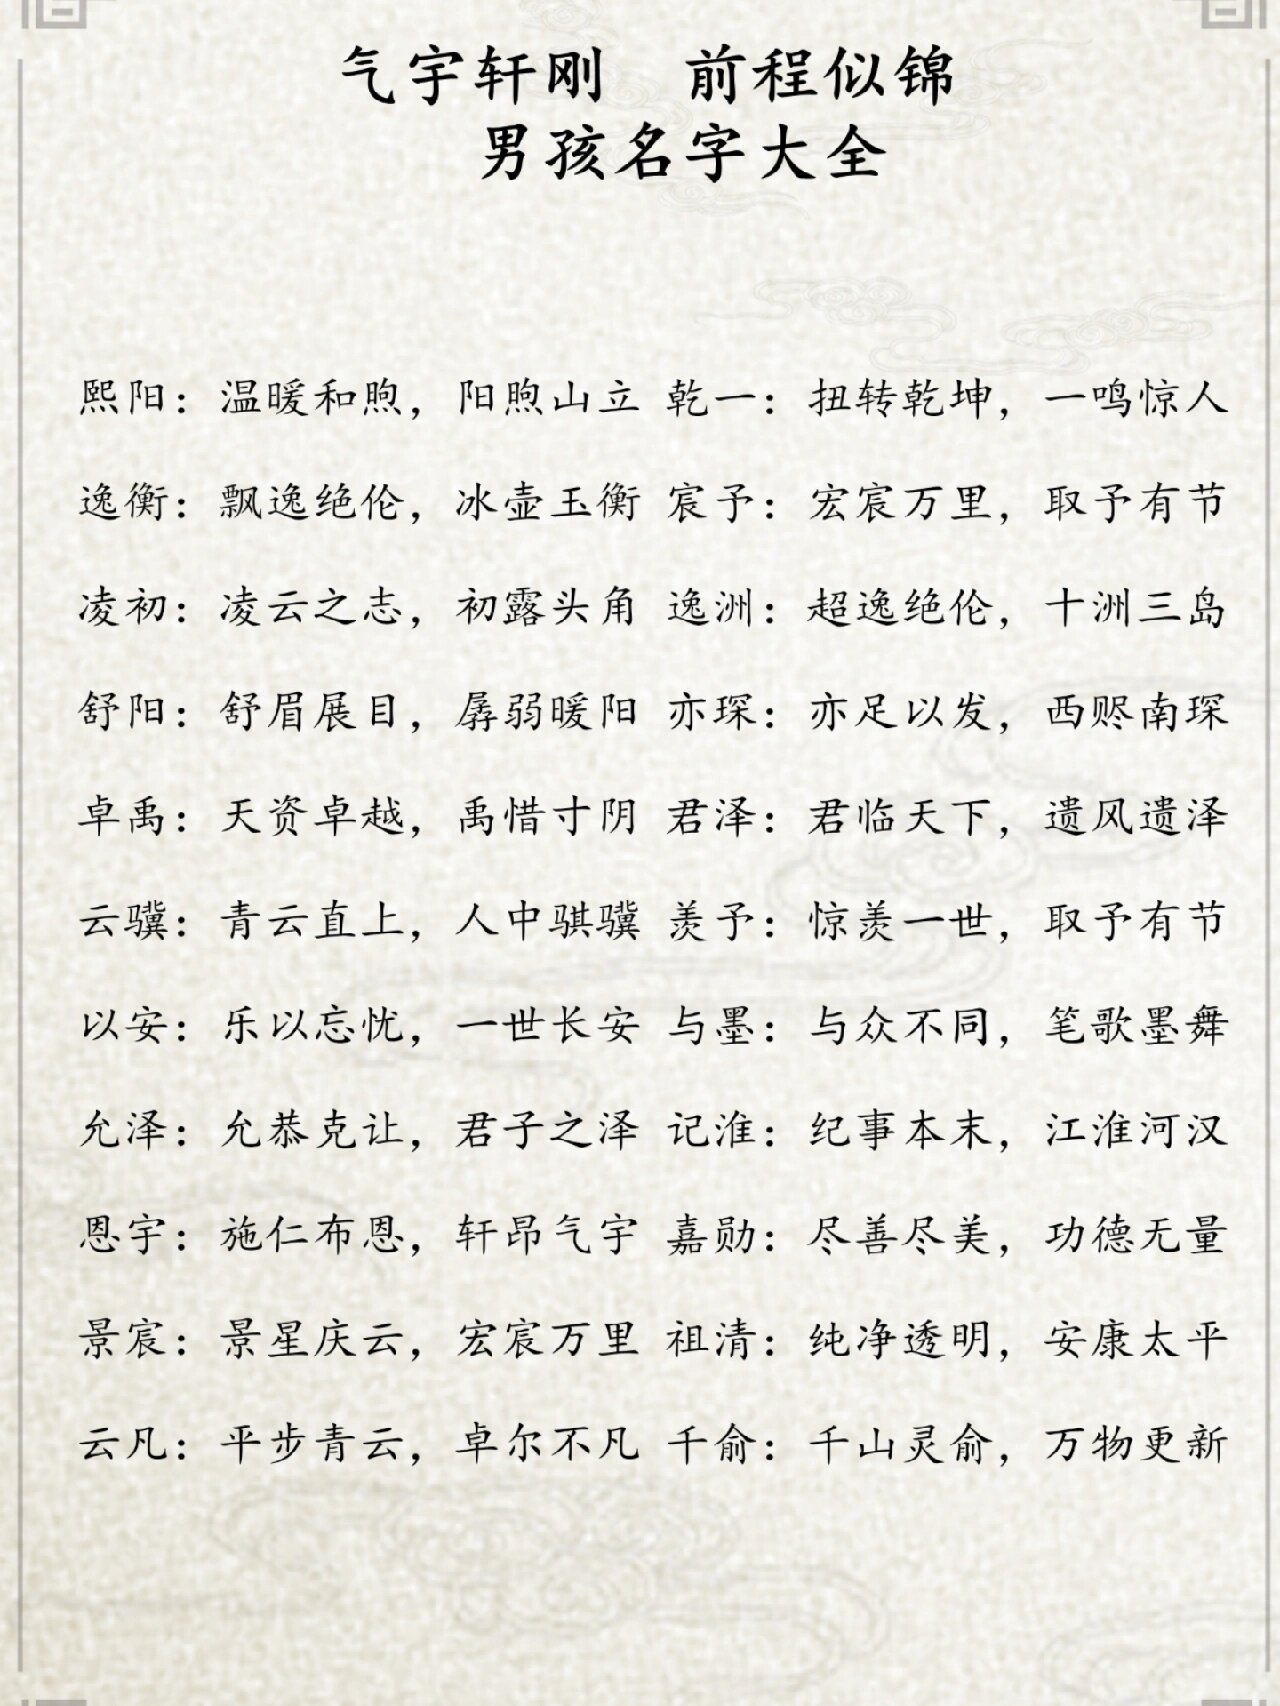 气宇轩刚 前程似锦
男孩名字大全
熙阳：温暖和煦，阳煦山立 乾一：扭转乾坤，一鸣惊人
逸衡：飘逸绝伦，冰壶玉衡 宸予：宏宸万里，取予有节
凌初：凌云之志，初露头角 逸洲：超逸绝伦，十洲三岛
舒阳：舒眉展目，孱弱暖阳 亦琛：亦足以发，西赆南琛
卓禹：天资卓越，禹惜寸阴 君泽：君临天下，遗风遗泽
云骥：青云直上，人中骐骥 羡予：惊羡一世，取予有节
以安：乐以忘忧，一世长安 与墨：与众不同，笔歌墨舞
允泽：允恭克让，君子之泽 记淮：纪事本末，江淮河汉
恩宇：施仁布恩，轩昂气宇 嘉勋：尽善尽美，功德无量
景宸：景星庆云，宏宸万里 祖清：纯净透明，安康太平
云凡：平步青云，卓尔不凡 千俞：千山灵俞，万物更新